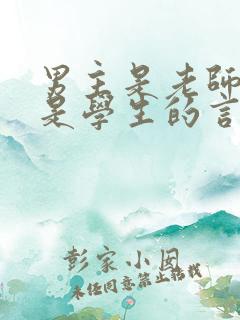 男主是老師
是學生的言
彭家小囡
未经同意禁止转载